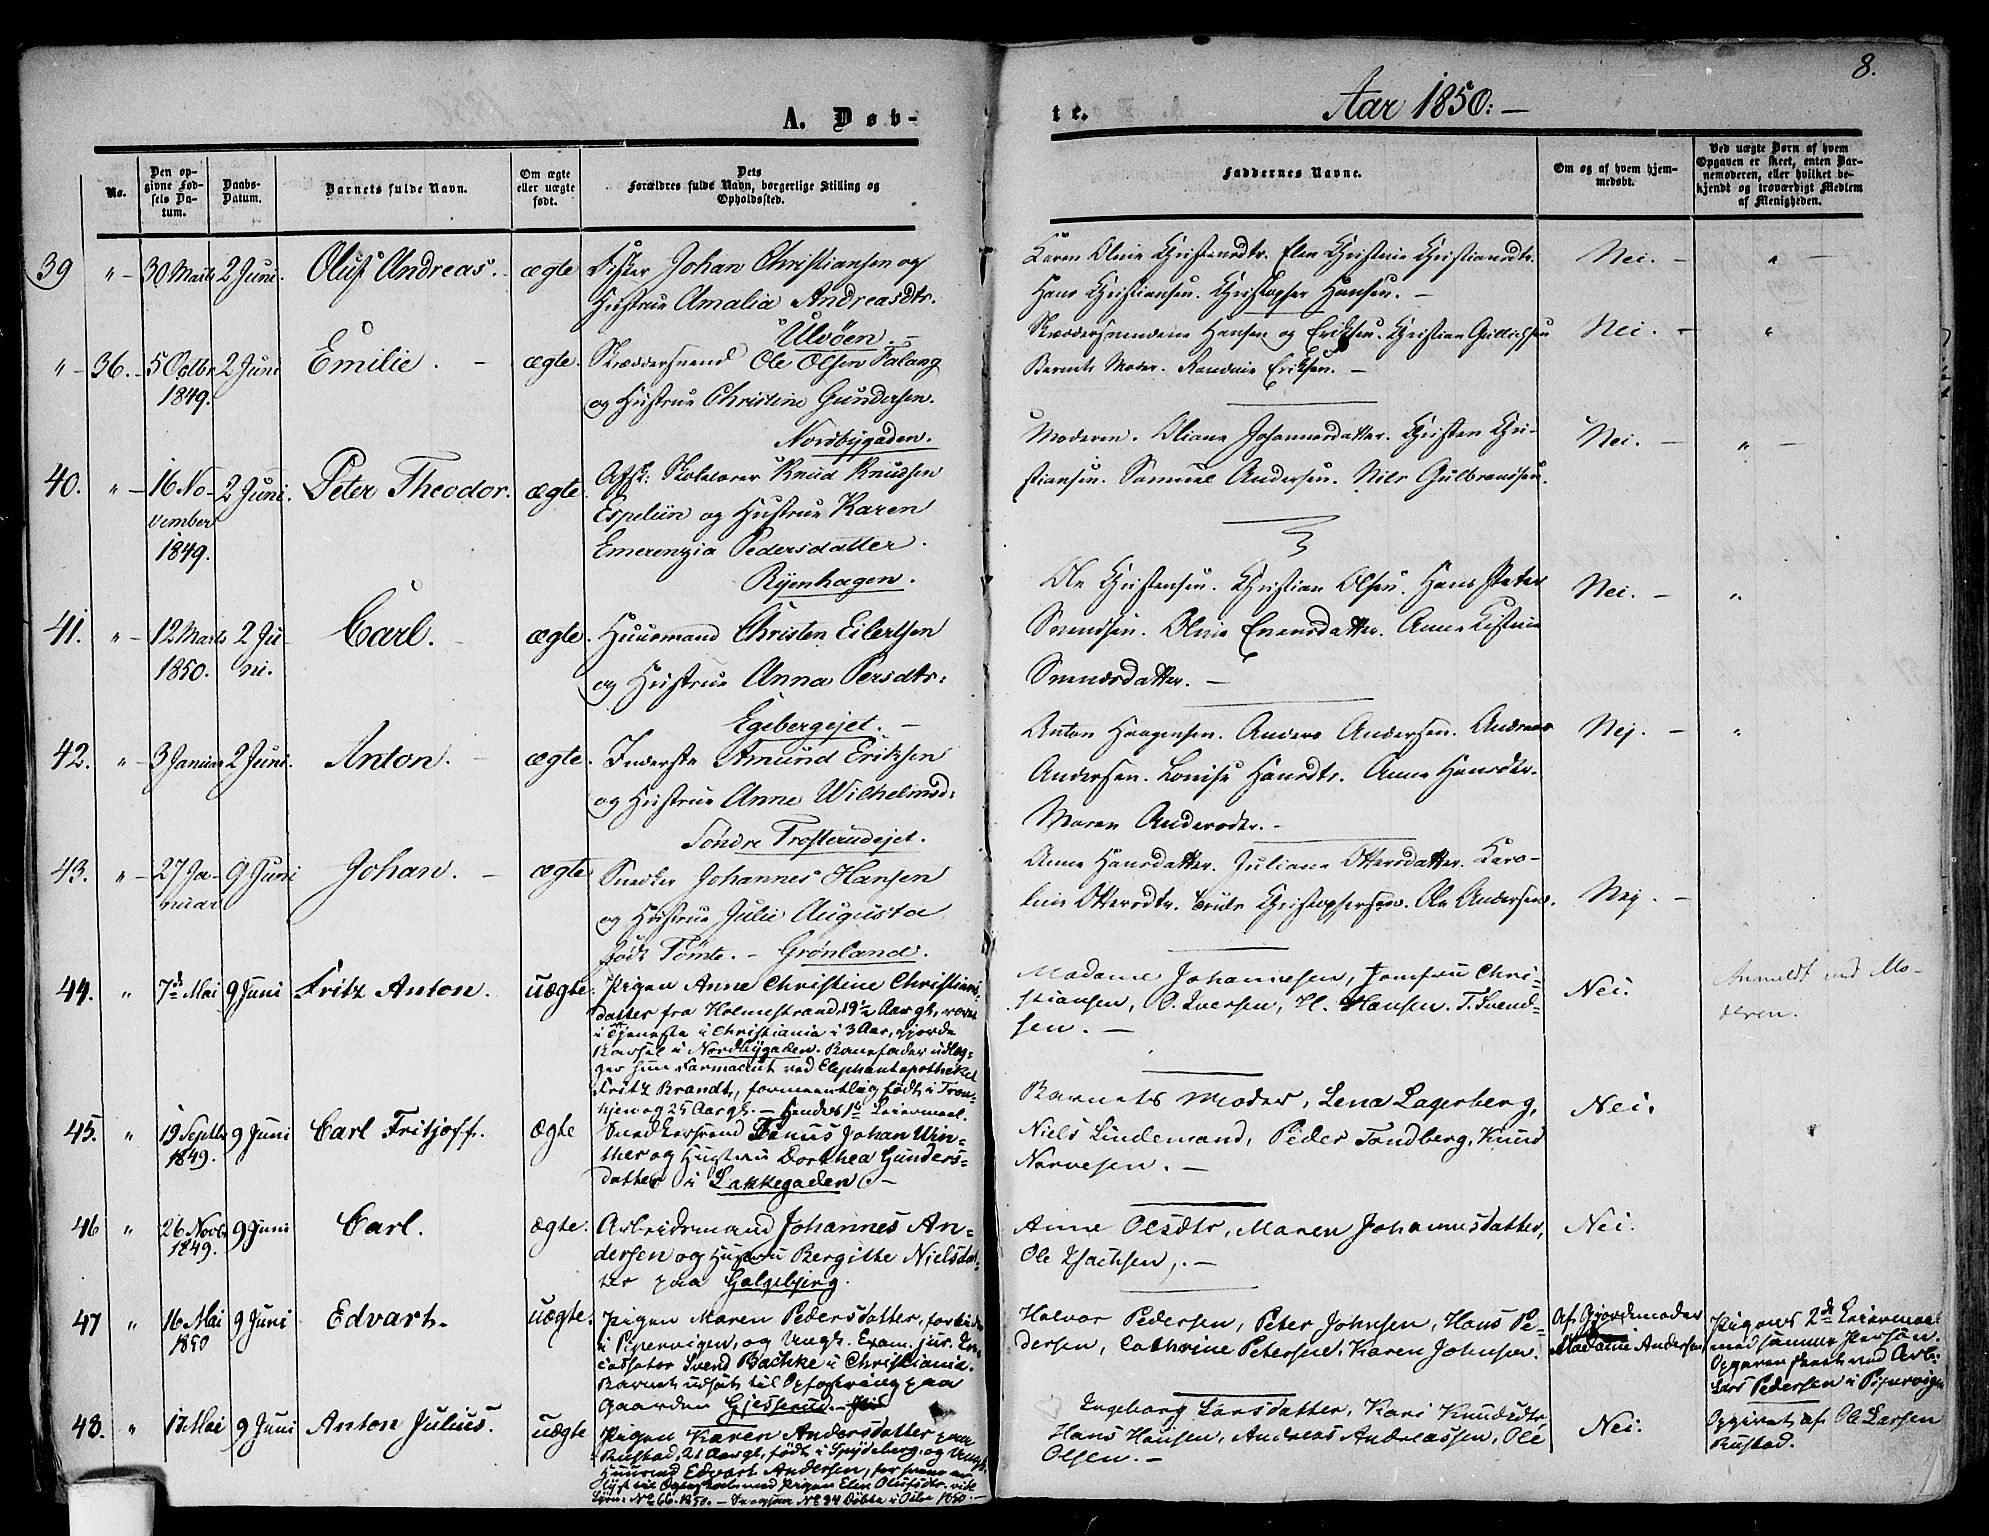 8.
A. Døb-
te.
Aar 1850:-
No.
Den op-
givne Fød-
sels Da-
tum.
Daabs-
Datum.
Barnets fulde Navn.
Om ægte
eller uægte
født.
Dets
Forældres fulde Navn, borgerlige Stilling og
Opholdssted.
Faddernes Navne.
Om og af hvem hjem-
medøbt.
Ved uægte Børn af hvem
Opgaven er skeet, enten Bar-
nemoderen, eller hvilket be-
kjendt og troværdigt Medlem
af Menigheden.
39 " 30 Marts 2 Juni. Oluf Andreas. ægte Fisker Johan Christiansen og
Hustrue Amalia Andreasdtr.
Ulvøen.
Karen Oline Christensdtr. Elen Christine Christiansdtr.
Hans Christiansen. Christopher Hansen.
Nei. "
" 36. 5 Octbr 2 Juni Emilie. ægte. Skræddersvend Ole Olsen Falang
1849.
og Hustrue Christine Gundersen.
Nordbygaden.
Skræddersvendene Hansen og Eriksen. Christian Gullichsen
Barnets Moder. Randine Eriksen.
Nei. "
40. " 16 No- 2 Juni. Peter Theodor. ægte. Afsk: Skolelærer Knud Knudsen
vember
1849.
Espeliin og Hustrue Karen
Emerenzia Pedersdatter.
Ryenhagen.
Moderen. Oliane Johannesdatter. Christen Chri-
stiansen. Samuel Andersen. Nils Gulbrandsen.
Nei. "
41. " 12 Marts 2 Ju- Carl. ægte. Huusmand Christen Eilertsen
1850. ni.
og Hustrue Anna Persdtr:
Egebergejet.
Ole Christensen. Christian Olsen. Hans Peter
Svendsen. Oline Evensdatter. Anne Kistine
Svendsdatter.
Nei. "
42. " 3 Januar 2 Juni. Anton. ægte. Inderste Amund Eriksen
og Hustrue Anne Wilhelmsd:
Søndre Trosterudejet.
Anton Haagensen. Anders Andersen. Andreas
Andersen. Lovise Hansdtr. Anne Hansdtr.
Maren Andersdtr.
Nej. "
43. " 27 Ja- 9 Juni Johan. ægte Snedker Johannes Hansen
nuar
og Hustrue Julie Augusta
født Tømte. - Grønland.
Anne Hansdatter. Juliane Ottersdatter. Karo-
line Ottersdtr. Truls Christophersen. Ole Andersen.
Nej.
44. " 7de Mai 9 Juni Fritz Anton. uægte. Pigen Anne Christine Christians-
datter fra Holmestrand, 19½ Aar gl, været
i Tjeneste i Christiania i 3 Aar, gjorde
Barsel i Nordbygaden. Barnefader udlæg-
ger hun Farmaceut ved Elephantapotheket
Fritz Brandt, formeentlig født i Tron-
hjem og 25 Aar gl. - Hendes 1ste Leiermaal.
Madame Johannesen, Jomfru Chri-
stiansen, O. Iversen, H. Hansen. T. Svend-
sen.
Nei.
Anmeldt ved Mo-
deren.
45. " 19 Septbr 9 Juni Carl Fritjoff. ægte Snedkersvend Linus Johan Win-
1849.
ther og Hustru Dorthea Gunders-
datter i Lakkegaden
Barnets Moder, Lena Lagerberg,
Niels Lindemand, Peder Tandberg, Knud
Norvesen.
Nei.
46 " 26 Novbr 9 Juni Carl. ægte. Arbeidsmand Johannes An-
1849.
dersen og Hustru Bergitte Nielsdat-
ter paa Galgebjerg.
Anne Olsdtr, Maren Johannesdatter,
Ole Isachsen,.
Nei.
47 " 16 Mai 9 Juni Edvart. uægte. Pigen Maren Pedersdatter,
1850
i Pipervigen, og Ungk. Exam. jur. In-
cassator Svend Bachke i Christiania.
Barnet udsat til Opfostring paa
Gaarden Gjesserud.
Halvor Pedersen, Peter Johnsen, Hans Pe-
dersen, Cathrine Petersen, Karen Johnsen.
Af Gjordemoder
Madame Andersen
Pigens 2det Leiermaal
med samme Person.
Opgaven skeet ved Arb:
Lars Pedersen i Pipervigen
48. " 17 Mai 9 Juni Anton Julius. uægte Pigen Karen Andersdatter paa
Rustad, 21 Aar gl, født i Spydeberg, og Ungk.
Huusmd Edvart Andersen, før
lyst til Ægteskab med Pigen Elen Olufsdtr. vide
Lysn: No 66. 1850. - No 94 Døbte i Oslo 1850.
Ingeborg Larsdatter, Kari Knudsdtr,
Hans Hansen, Andreas Andreassen, Ole
Olsen.
Nei.
Opgivet af Ole Larsen
Rustad.